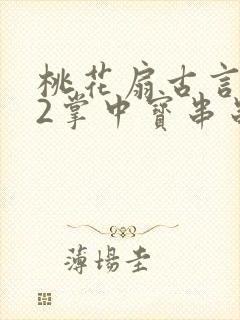 桃花扇古言
2掌中寶串
薄場圭